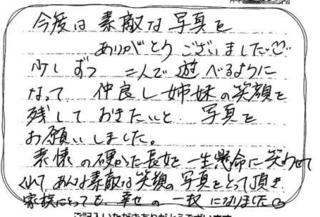 今度は素敵な写真を
ありがとうございました♡
少しずつ二人で遊べるように
なって 仲良し姉妹の笑顔を
残しておきたいと 写真を
お願いしました。
表情の硬かった長女を一生懸命に笑わせて
くれて、あんな素敵な笑顔の写真をとって頂き
家族にとって 幸せの一枚になりました
ご記入いただきありがとうございます